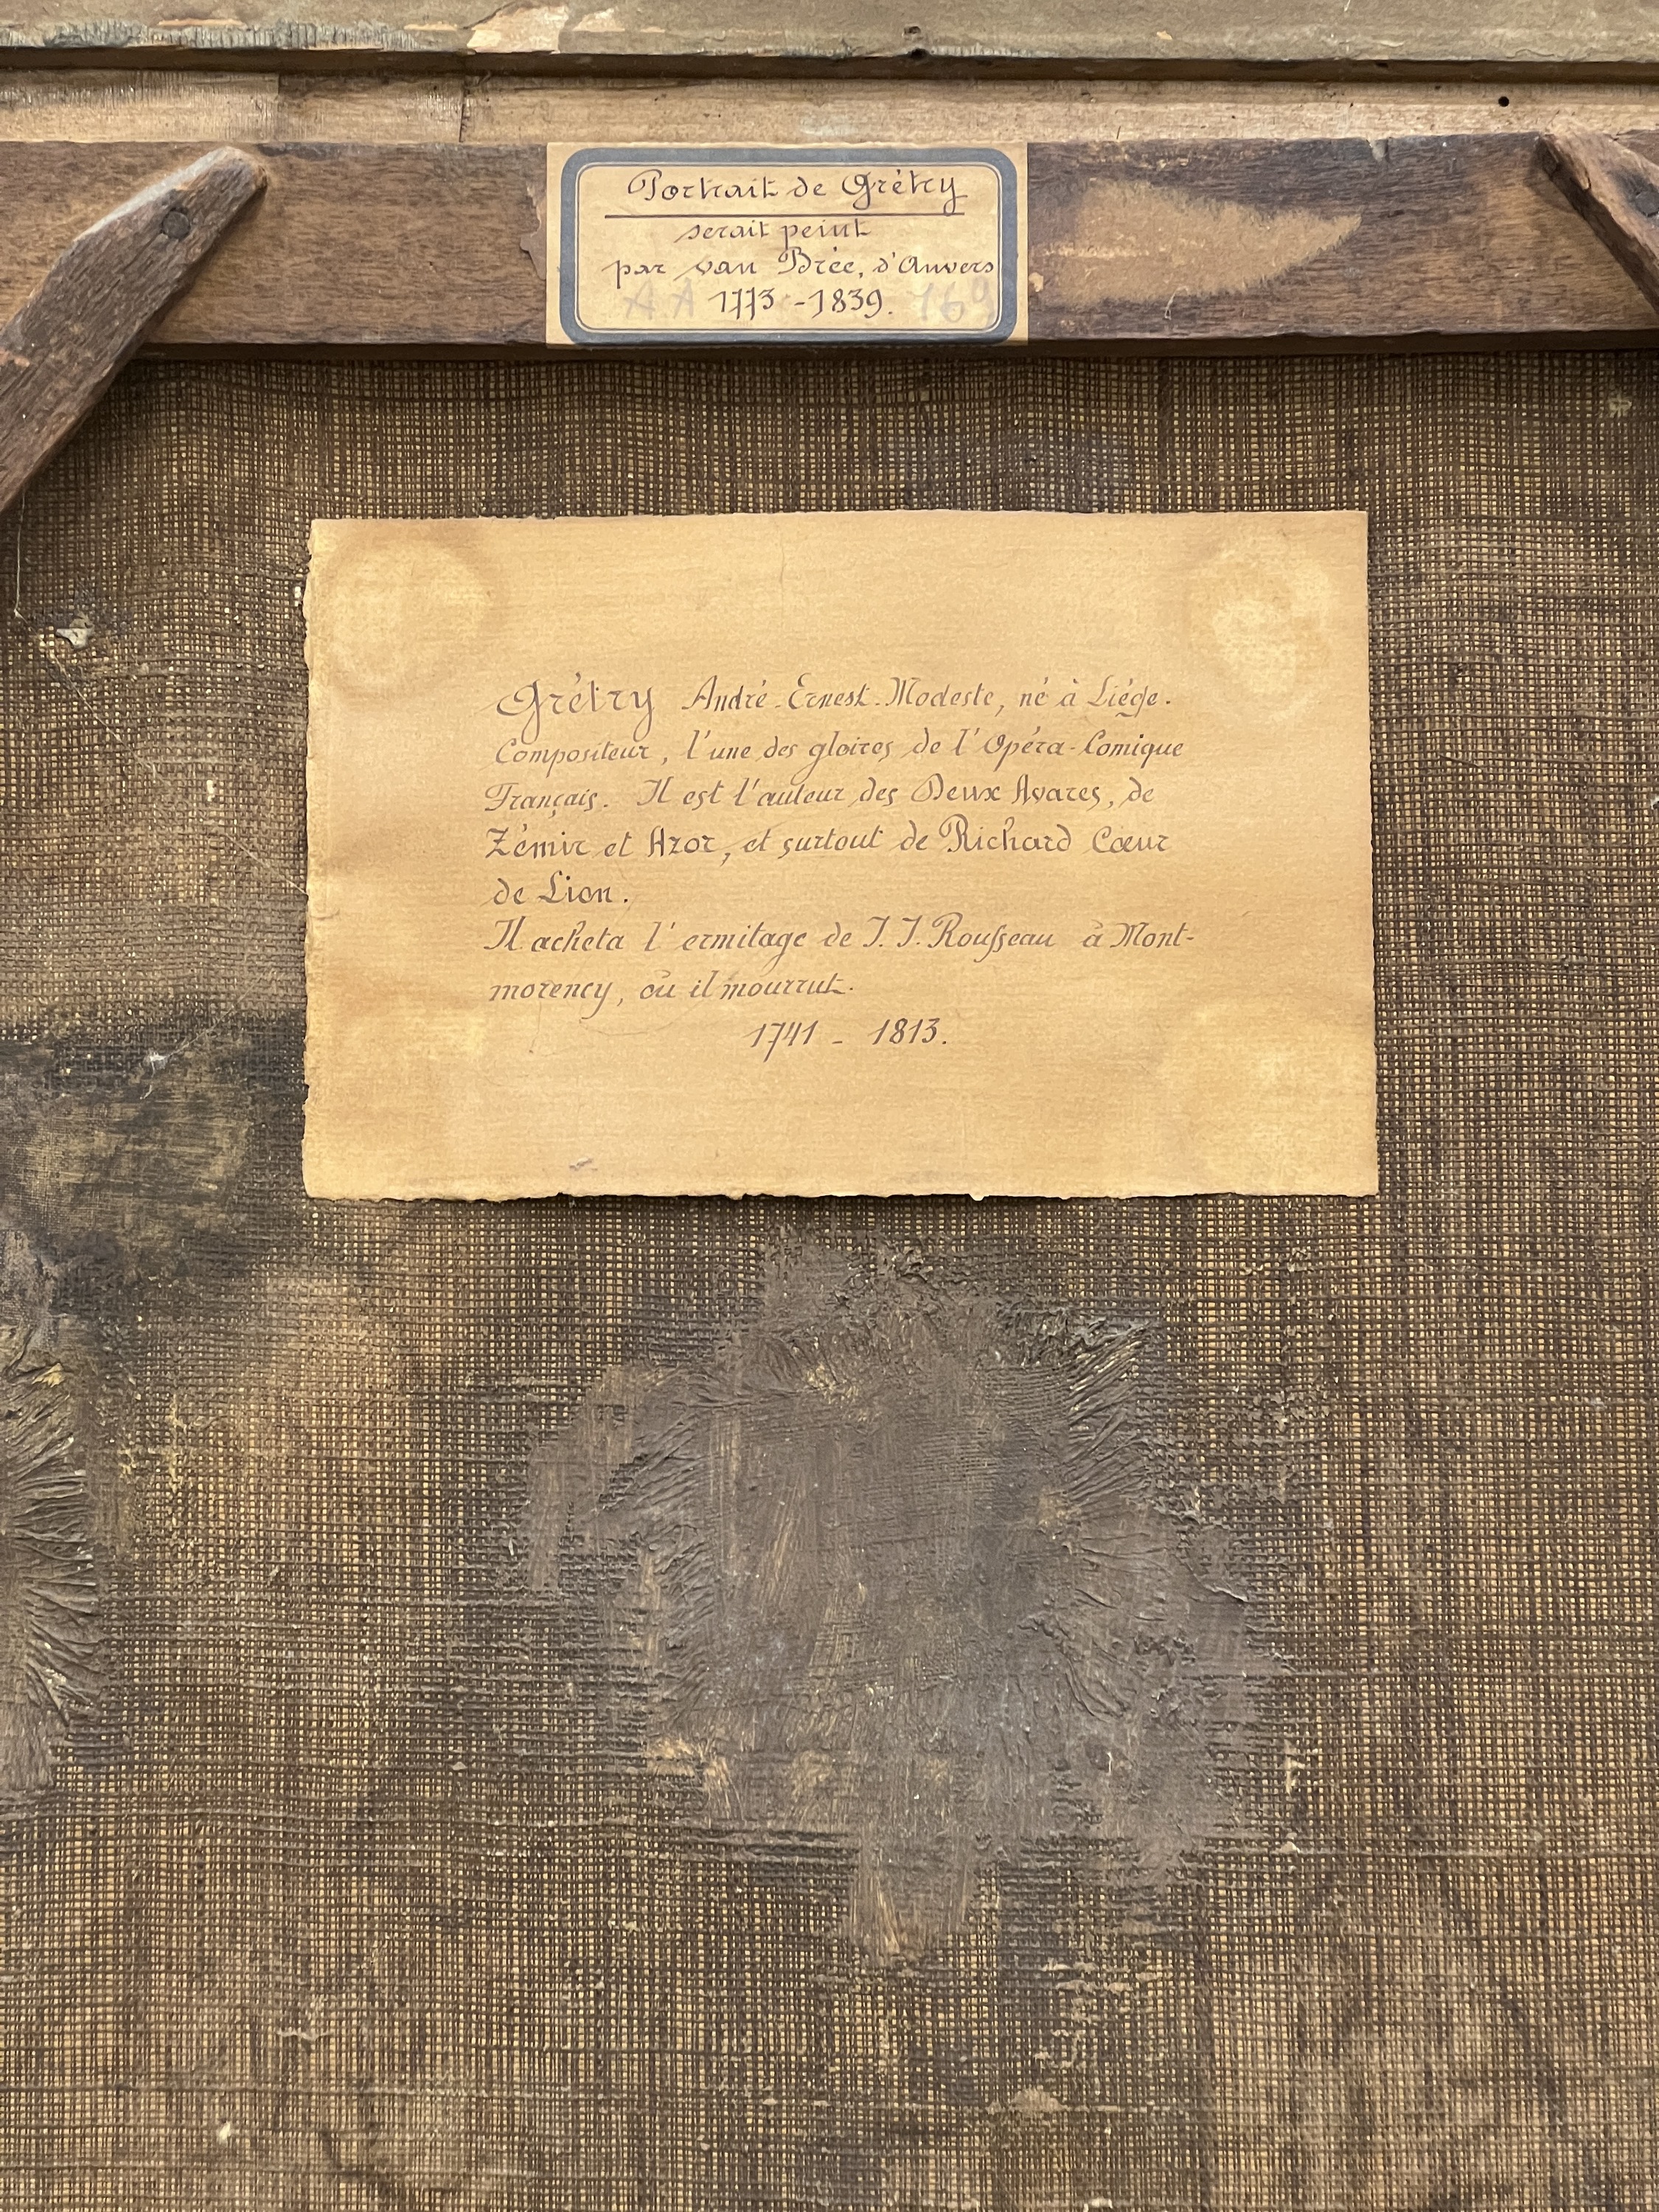 Portrait de Grétry
serait peint
par van Brée, d'Anvers
AA 1773 - 1839. 169
Grétry André-Ernest-Modeste, né à Liége.
Compositeur, l'une des gloires de l'Opéra-Comique
Français. Il est l'auteur des Deux Avares, de
Zémir et Azor, et surtout de Richard Cœur
de Lion.
Il acheta l'ermitage de J. J. Rousseau à Mont-
morency, où il mourrut.
1741 - 1813.